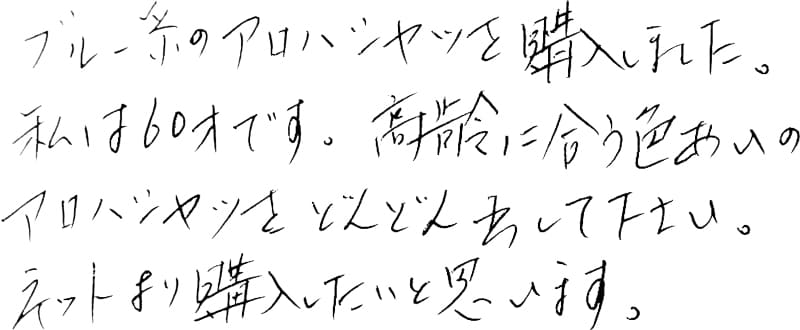 ブルー系のアロハシャツを購入しました。
私は60才です。高齢に合う色あいの
アロハシャツをどんどん出して下さい。
ネットより購入したいと思います。